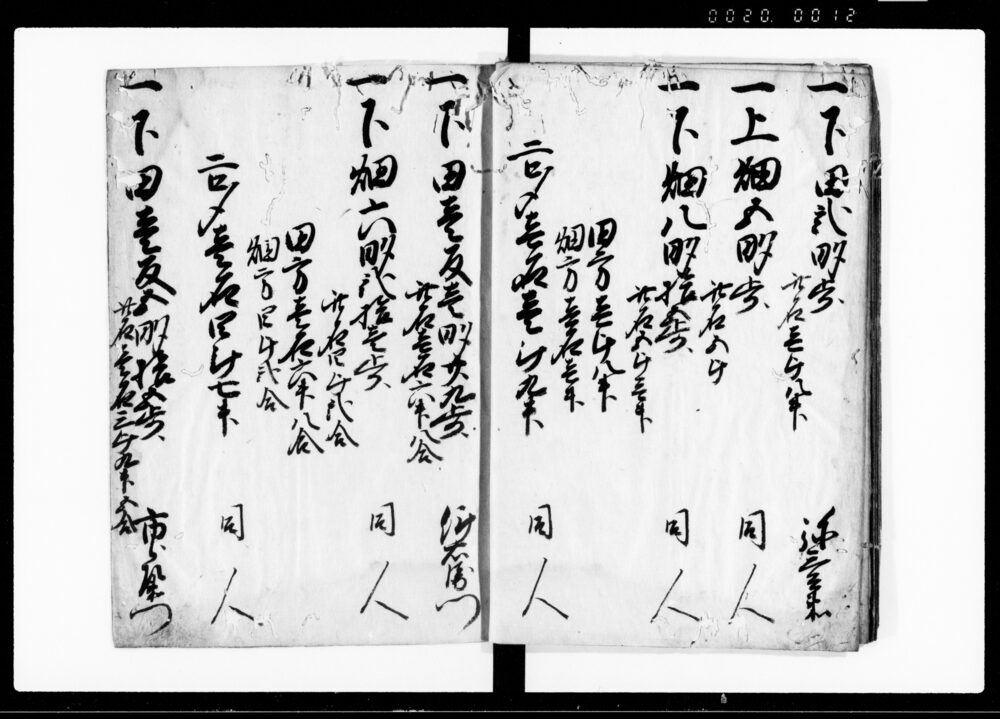 0020. 0012
一下田弐畝歩
此石壱斗八升
一上畑五畝歩 同人
此石五斗
一下畑八畝拾五歩 同人
此石五斗壱升
田方壱斗八升
畑方壱石壱升
二口〆壱石壱斗九升 同人
一下田壱反壱畝廿九歩 右衛門
此石壱石六升八合
一下畑六畝弐拾壱歩 同人
此石四斗弐合
田方壱石六升八合
畑方四斗弐合
二口〆壱石四斗七升 同人
一下田壱反五畝拾五歩 市左衛門
此石壱石三斗九升五合